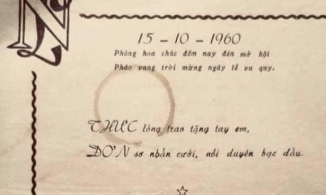 N
15 - 10 - 1960
Phòng hoa chúc đêm nay đèn mở hội
Pháo vang trời mừng ngày lễ vu quy.
THỨC lòng trao tặng tay em,
ĐƠN sơ nhẫn cưới, nối duyên bạc đầu.